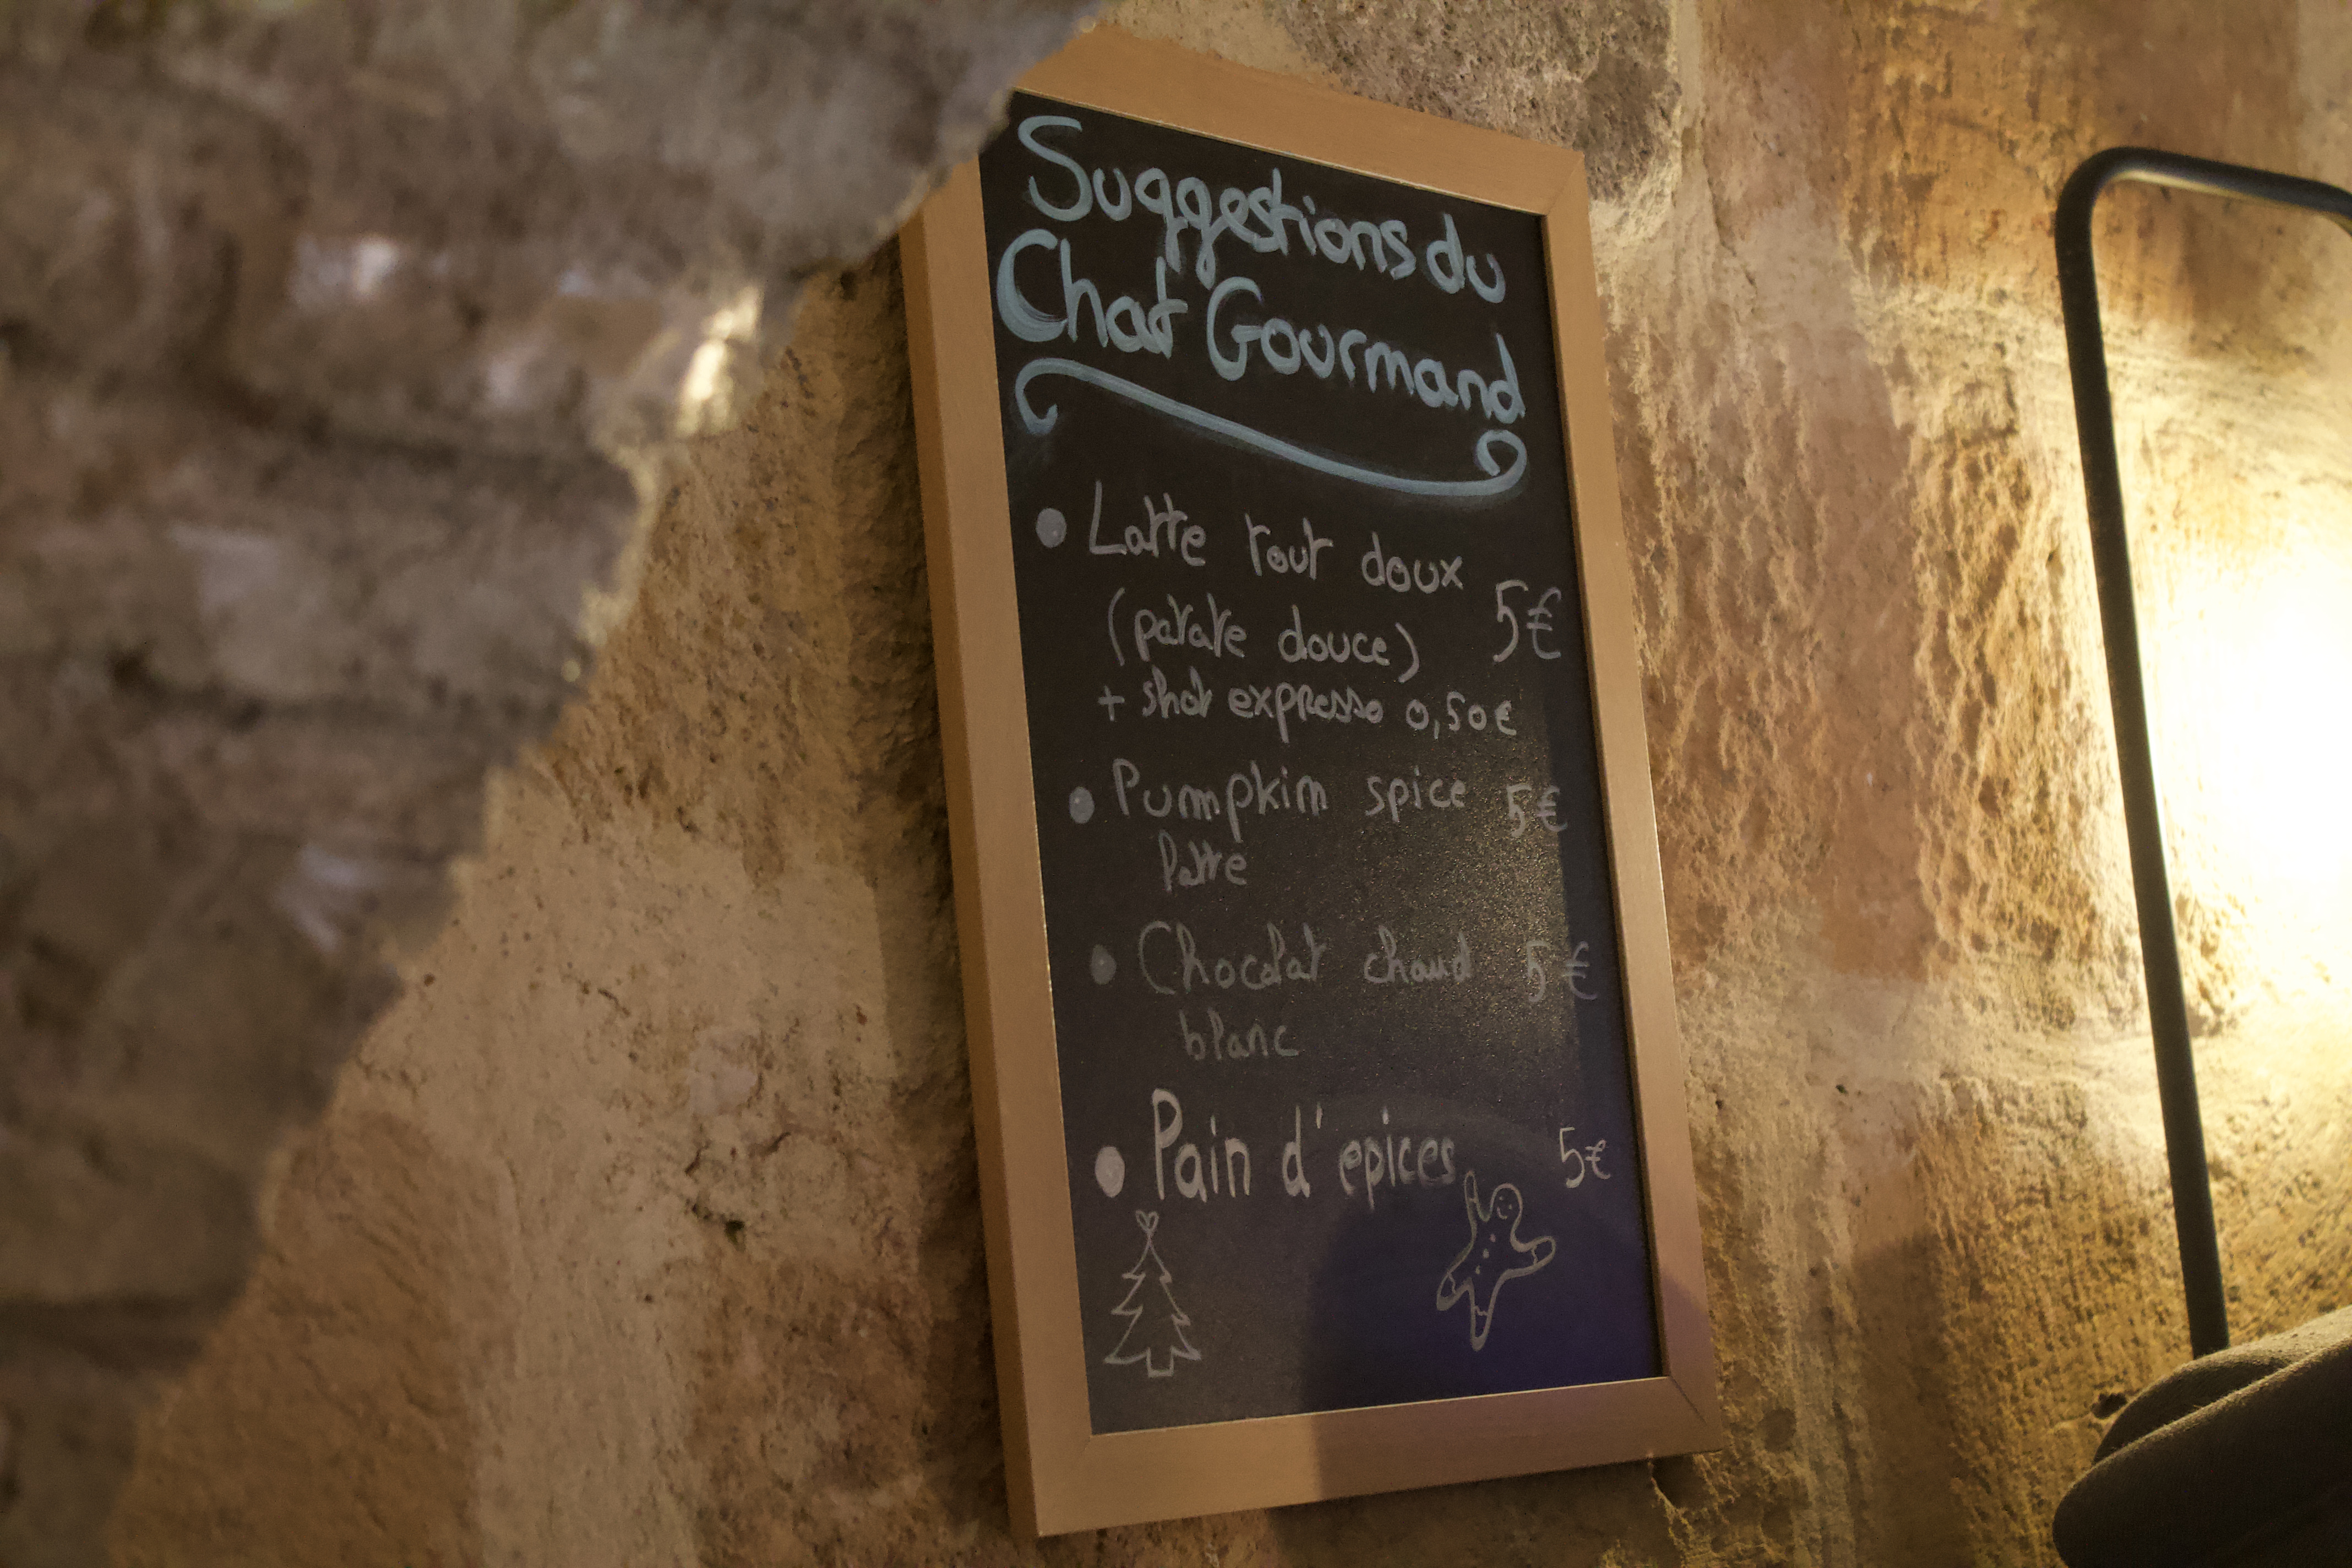 Suggestions du
Chat Gourmand
• Latte tout doux
(patate douce) 5€
+ shot expresso 0,50€
• Pumpkin spice 5€
latte
• Chocolat chaud 5€
blanc
• Pain d'epices 5€